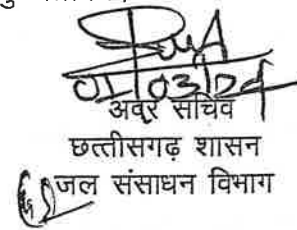 01/03/24
अवर सचिव
छत्तीसगढ़ शासन
जल संसाधन विभाग